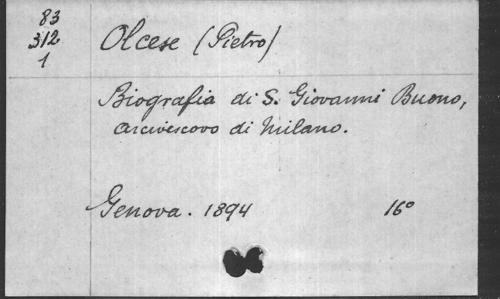 83
312
1
Olcese (Pietro)
Biografia di S. Giovanni Buono,
arcivescovo di Milano.
Genova. 1894 16º